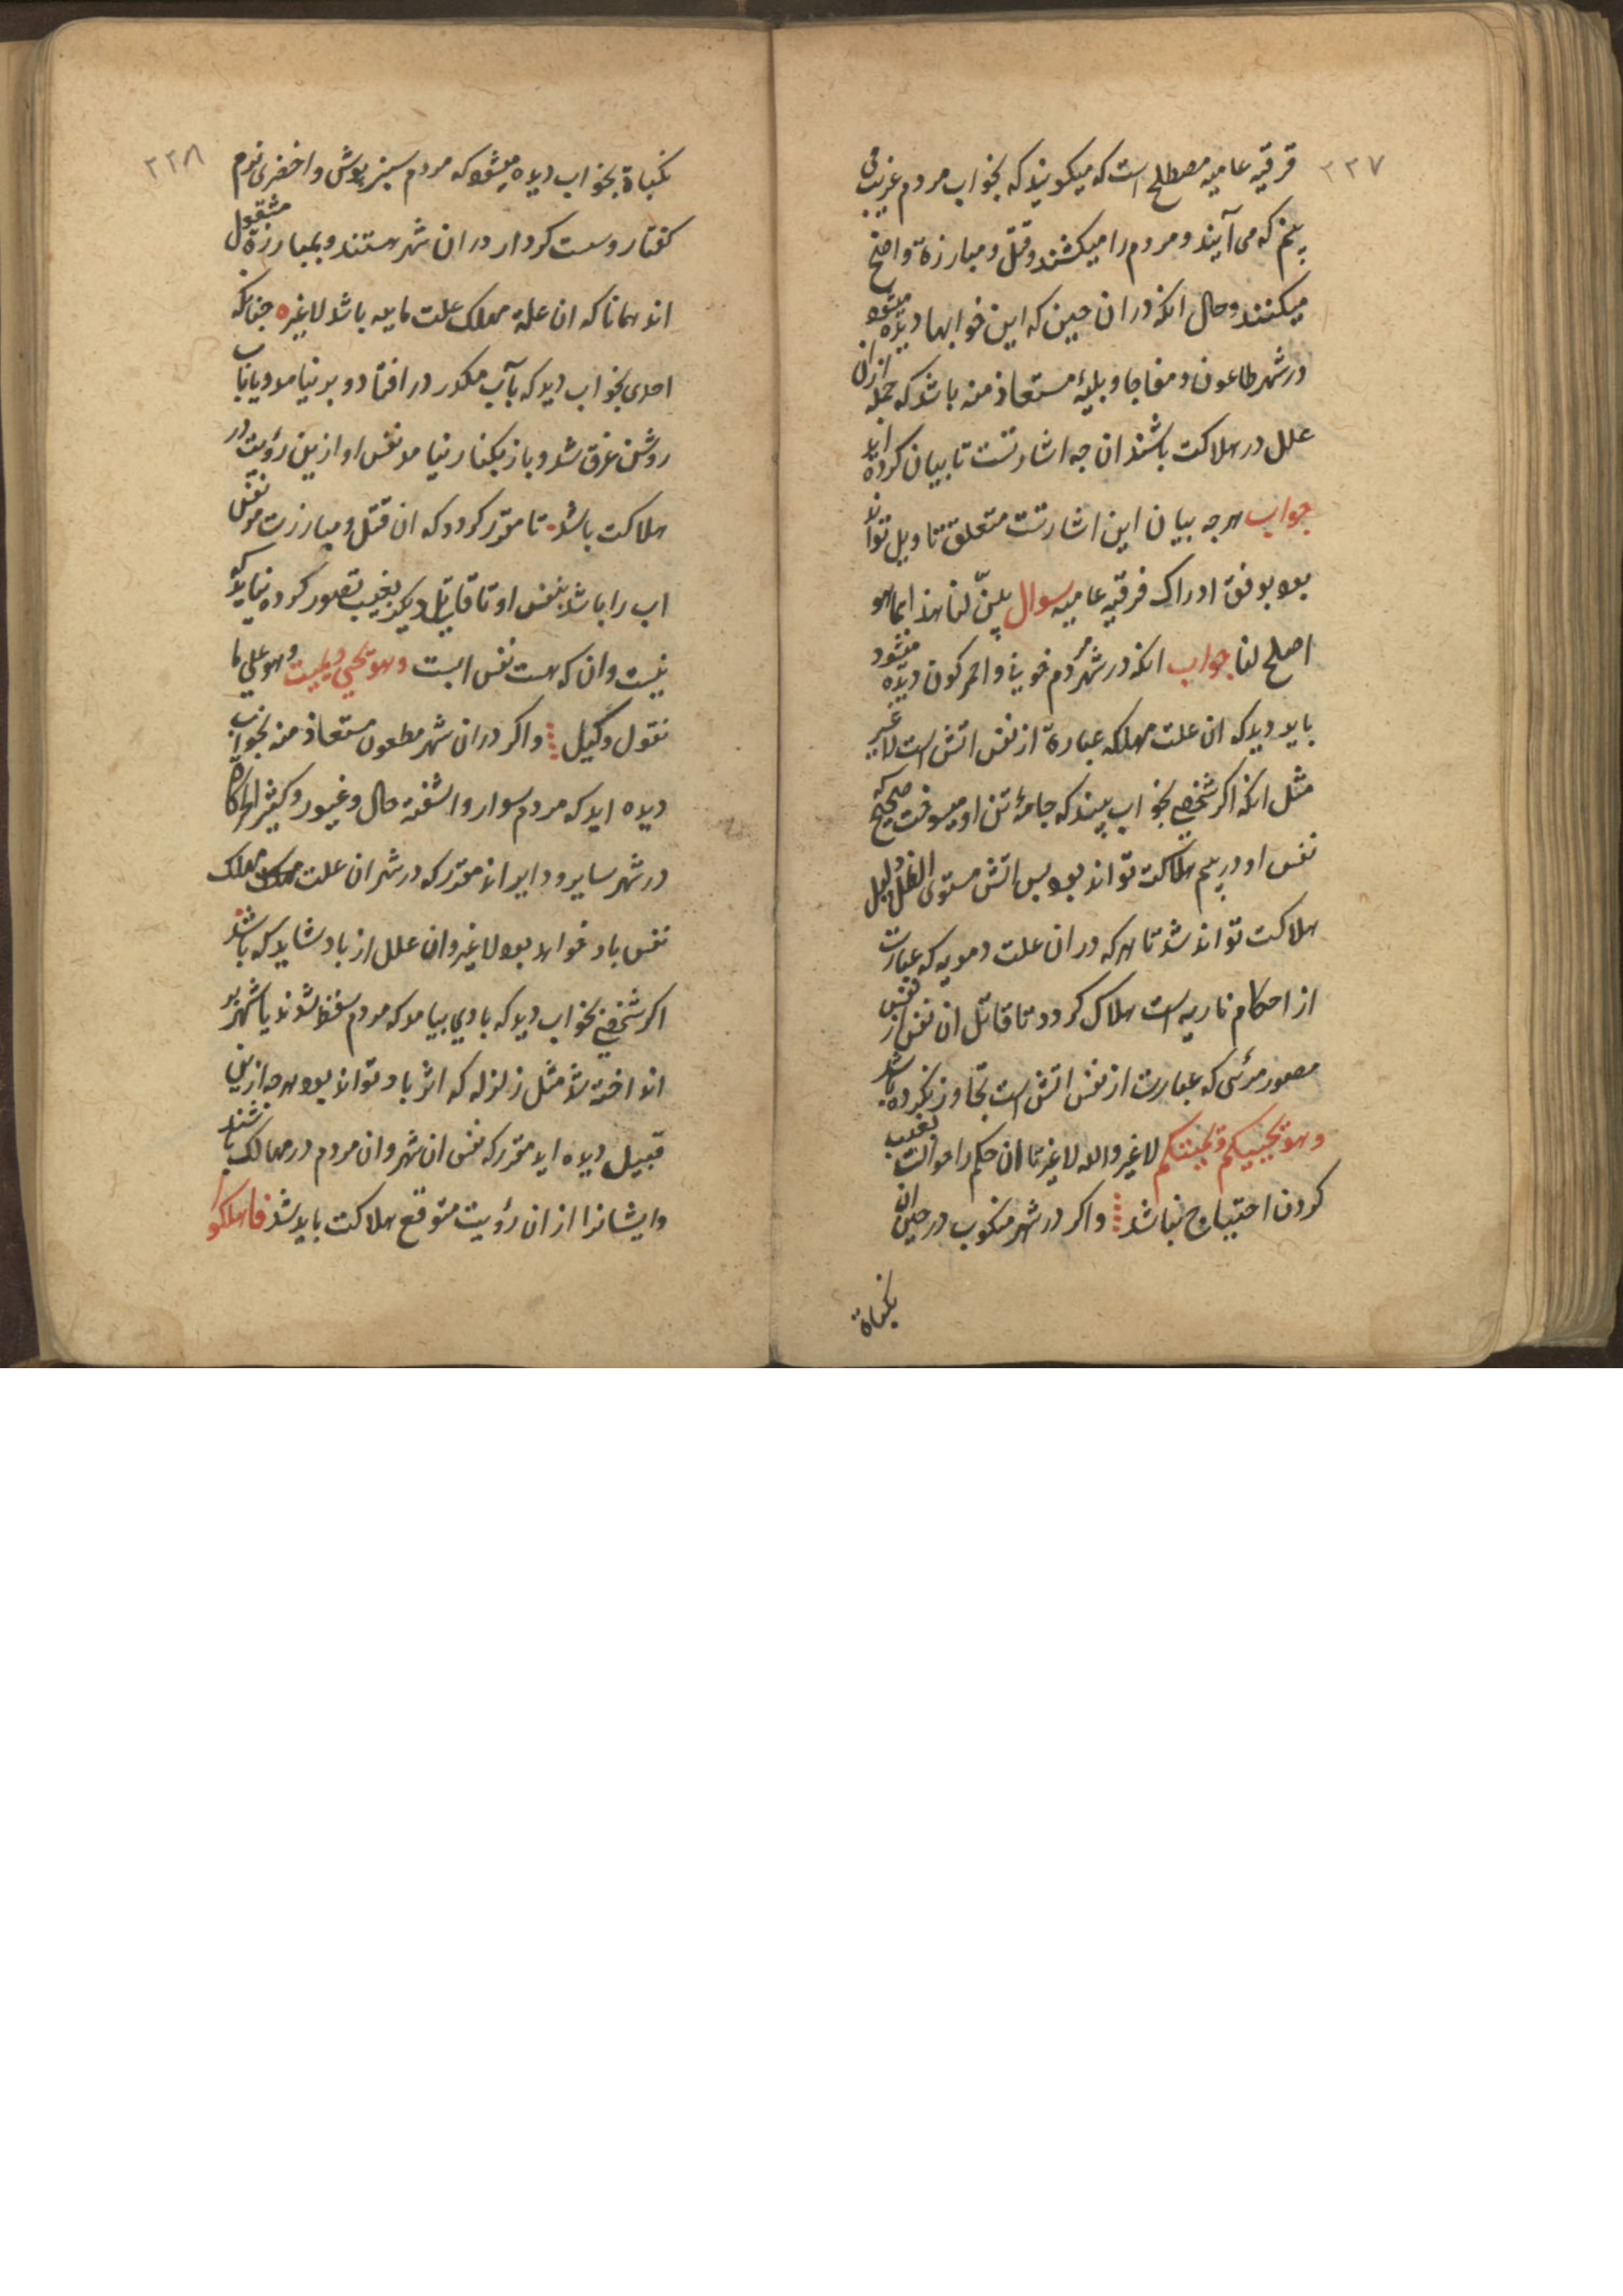 ۲۲۷
فرقیه عامیه مصطلح است که میکویند که بخواب مردم غریب
که می آیند و مردم را میکشند و قتل و مبارزة واضح
میکنند و حال انکه در ان حین که این خوابها دیده میشود
در شهر طاعون و مفاجا و بلیهٔ مستعاذ منه باشد که جمله ازان
علل در هلاکت باشند ان چه اشارتست تا بیان کرده اید
جواب هرچه بیان این اشارتست متعلق تاویل تواند
بود بوفق ادراک فرقیه عامیه سوال بیّن لنا هذا ایما هو
اصلح لنا جواب انکه در شهر مردم خونی و احمر کون دیده میشود
باید دید که ان علت مهلکه عبارة از نفس اتش است لا غیر
مثل انکه اکر شخصی بخواب بیند که جامهٔ تن او میسوخت صحیح که
نفس او در هلاکت تواند بود پس اتش مستوی الظل و لیل
هلاکت تواند شد تا هر که در ان علت دمویه که عبارت
از احکام ناریه است هلاک کردد تا قاتل ان نفس از نفس
مصور مرئی که عبارت از نفس اتش است تجاوز نکرده باشد
وهو یحییکم ویمیتکم لا غیر والله لا غیر تا ان حکم را حوالت بغیب
کردن احتیاج نباشد واکر در شهر منکوب در حین ان
بکناة
۲۲۸
بکناة بخواب دیده میشود که مردم سبز پوش و اخضری نوم
کفتار وست کردار در ان شهر هستند و بمبارزة مشغول
اند همانا که ان علة مهلک علت ماییه باشد لا غیر چنانکه
احدی بخواب دید که بآب مکدر در افتاد و بر نیامد و یا باب
روشن غرق شد و باز بکنار نیامد نفس او از این رؤیت در
هلاکت باشد تا مقرر کردد که ان قتل و مبارزت نفس
اب را باشد بنفس او تا قاتل دیکر بغیب تصور کرده نیاید که
نیست وان که هست نفس ابست وهو یحیی ویمیت وهو علی ما
نقول وکیل واکر در ان شهر مطعون مستعاذ منه بخواب
دیده اید که مردم سوار و اشفته حال و غیور و کثیر
در شهر سایر و دایر اند مقرر که در شهر ان علت مهلک
نفس باد خواهد بود لا غیر وان علل از باد شاید که باشد
اکر شخصی بخواب دید که بادی بیامد که مردم سقط شدند یا شهر
انداخته شد مثل زلزله که اثر باد تواند بود هرچه ازین
قبیل دیده اید مقرر که نفس ان شهر وان مردم در مهالک باشند
و ایشانرا از ان رؤیت متوقع هلاکت باید شد فاهلکوا